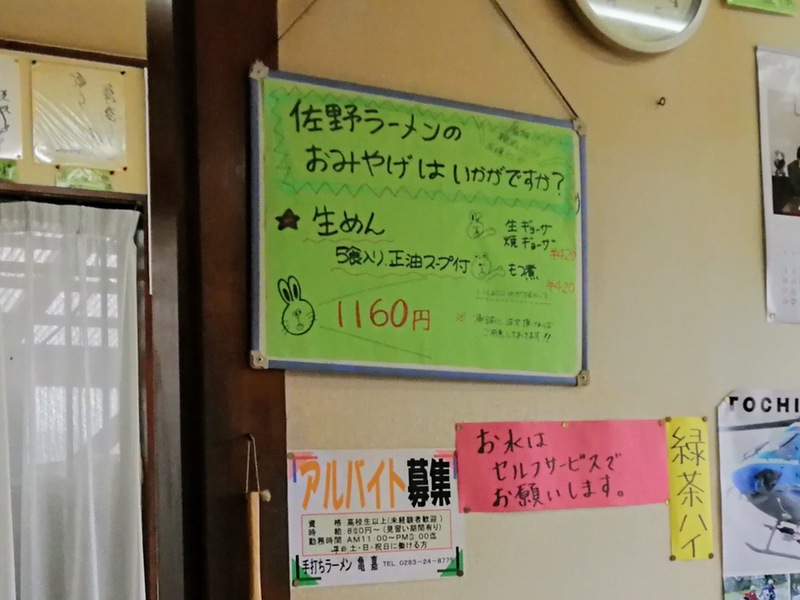 佐野ラーメンの
おみやげはいかがですか?
★生めん
5食入り正油スープ付
1160円
生ギョーザ
焼ギョーザ
¥420
もつ煮
¥420
お水は
セルフサービスで
お願いします。
緑茶ハイ
アルバイト募集
資　格 高校生以上(未経験者歓迎)
勤務時間 AM11:00〜
土・日・祝日に働ける方
手打ちラーメン 亀嘉
TEL 0283-24-8775
TOCHI